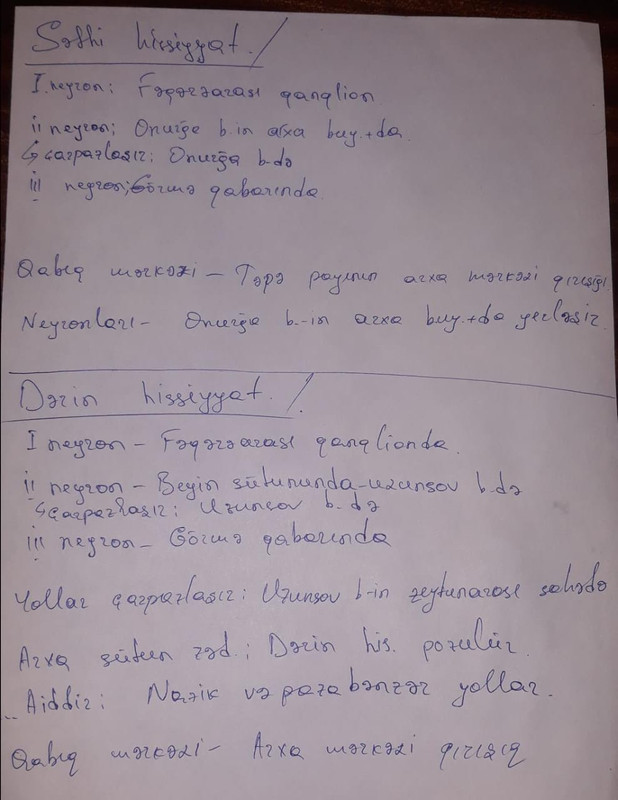 Səthi hissiyyat.
I neyron: Fəqərəarası qanqlion
ii neyron; Onurğa b.in arxa buy.+da.
↳çarpazlaşır: Onurğa b-də
iii neyron; Görmə qabarında.
Qabıq mərkəzi - Təpə payının arxa mərkəzi qırışığı
Neyronları - Onurğa b.-in arxa buy.+da yerləşir.
Dərin hissiyyat.
I neyron - Fəqərəarası qanqlionda.
ii neyron - Beyin sütununda-uzunsov b.də
↳çarpazlaşır: Uzunsov b.də
iii neyron - Görmə qabarında
Yollar çarpazlaşır: Uzunsov b-in zeytunarası sahədə
Arxa sütun zəd.; Dərin his. pozulur.
Aiddir: Nazik və pazabənzər yollar.
Qabıq mərkəzi - Arxa mərkəzi qırışıq